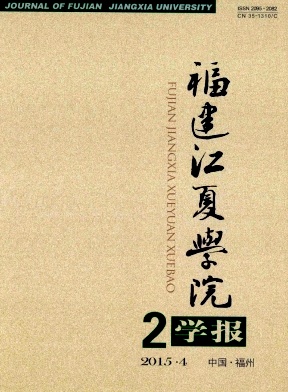 JOURNAL OF FUJIAN JIANGXIA UNIVERSITY
ISSN 2095-2082
CN 35-1310/C
福建江夏學院
FUJIAN JIANGXIA XUEYUAN XUEBAO
2学报
2015·4
中国·福州